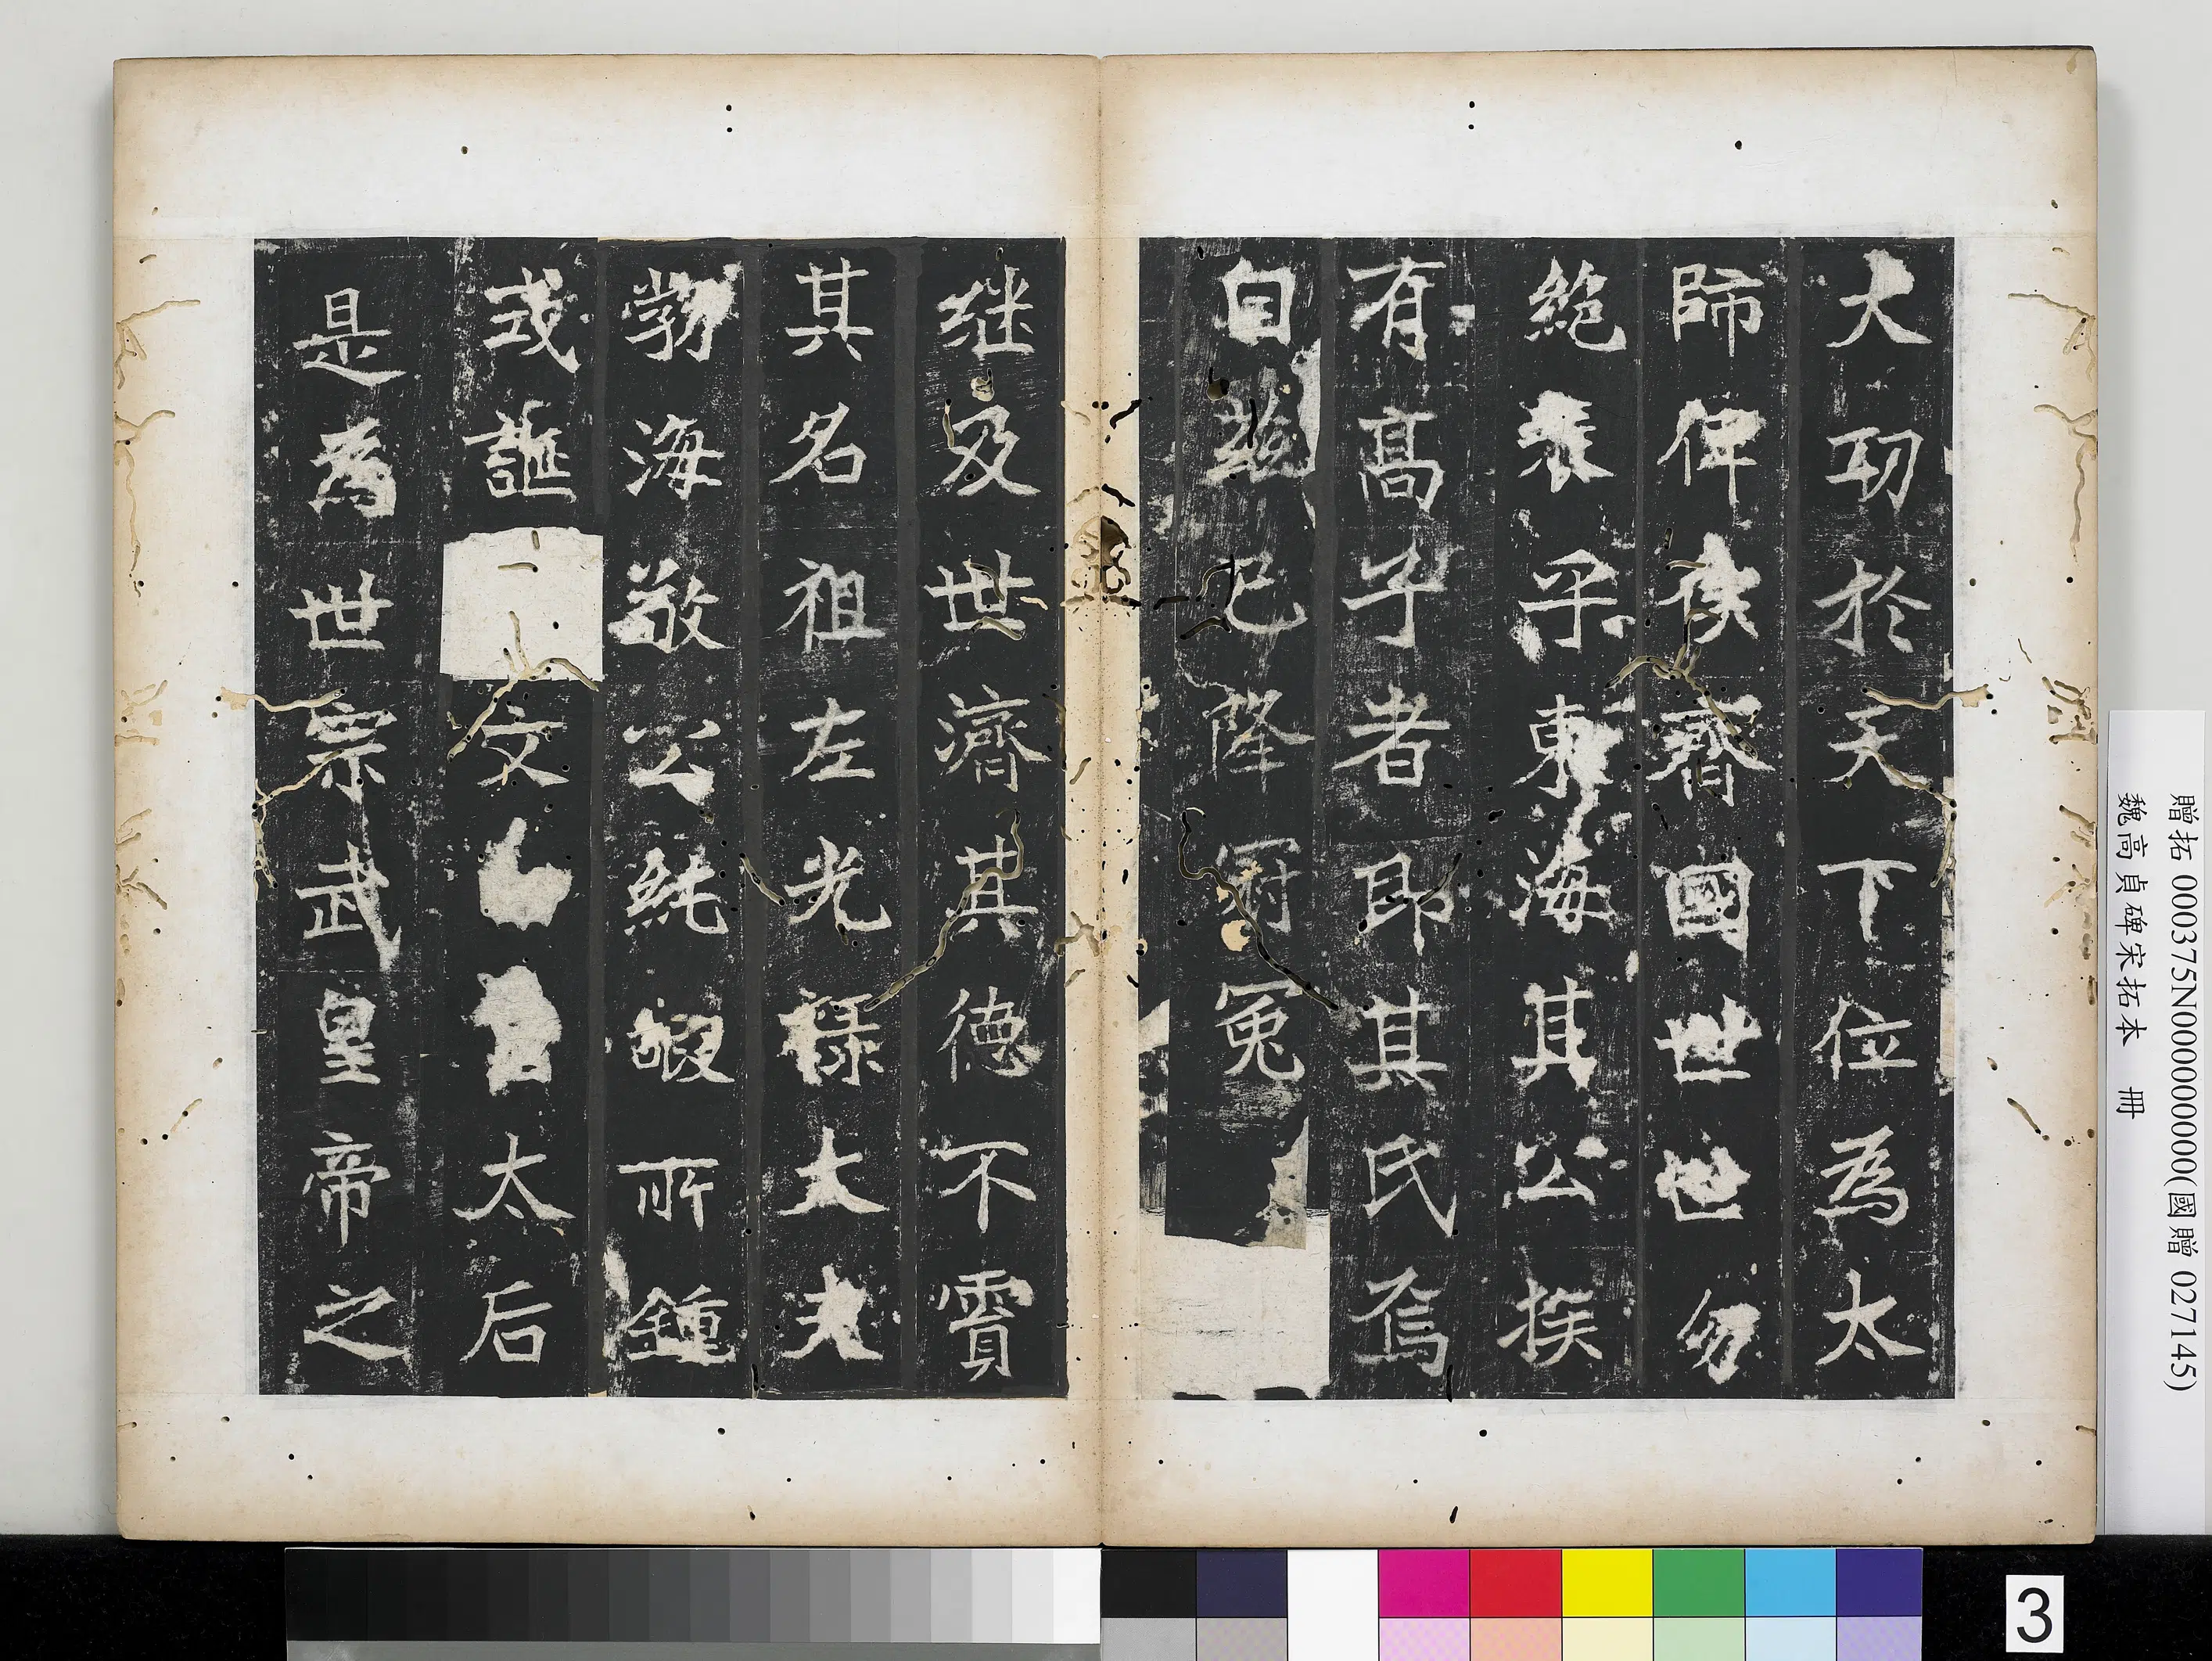 大功於天下位為太
師俾侯齊國世世勿
絕表乎東海其公族
有髙子者即其氏焉
自茲已降冠冕
継及世濟其德不霣
其名祖左光祿大夫
勃海敬公純嘏所鍾
式誕 文 太后
是為世宗武皇帝之
贈拓 000375N000000000(國贈 027145)
魏高貞碑宋拓本 冊
3